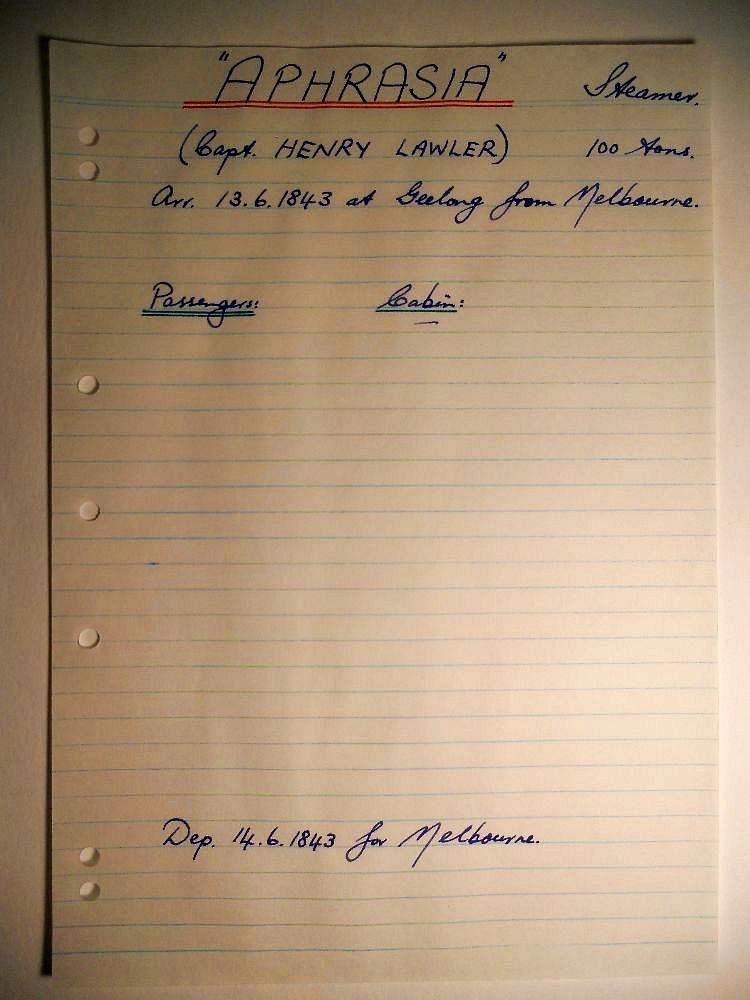 "APHRASIA" Steamer.
(Capt. HENRY LAWLER) 100 tons.
Arr. 13.6.1843 at Geelong from Melbourne.
Passengers: Cabin:
Dep. 14.6.1843 for Melbourne.